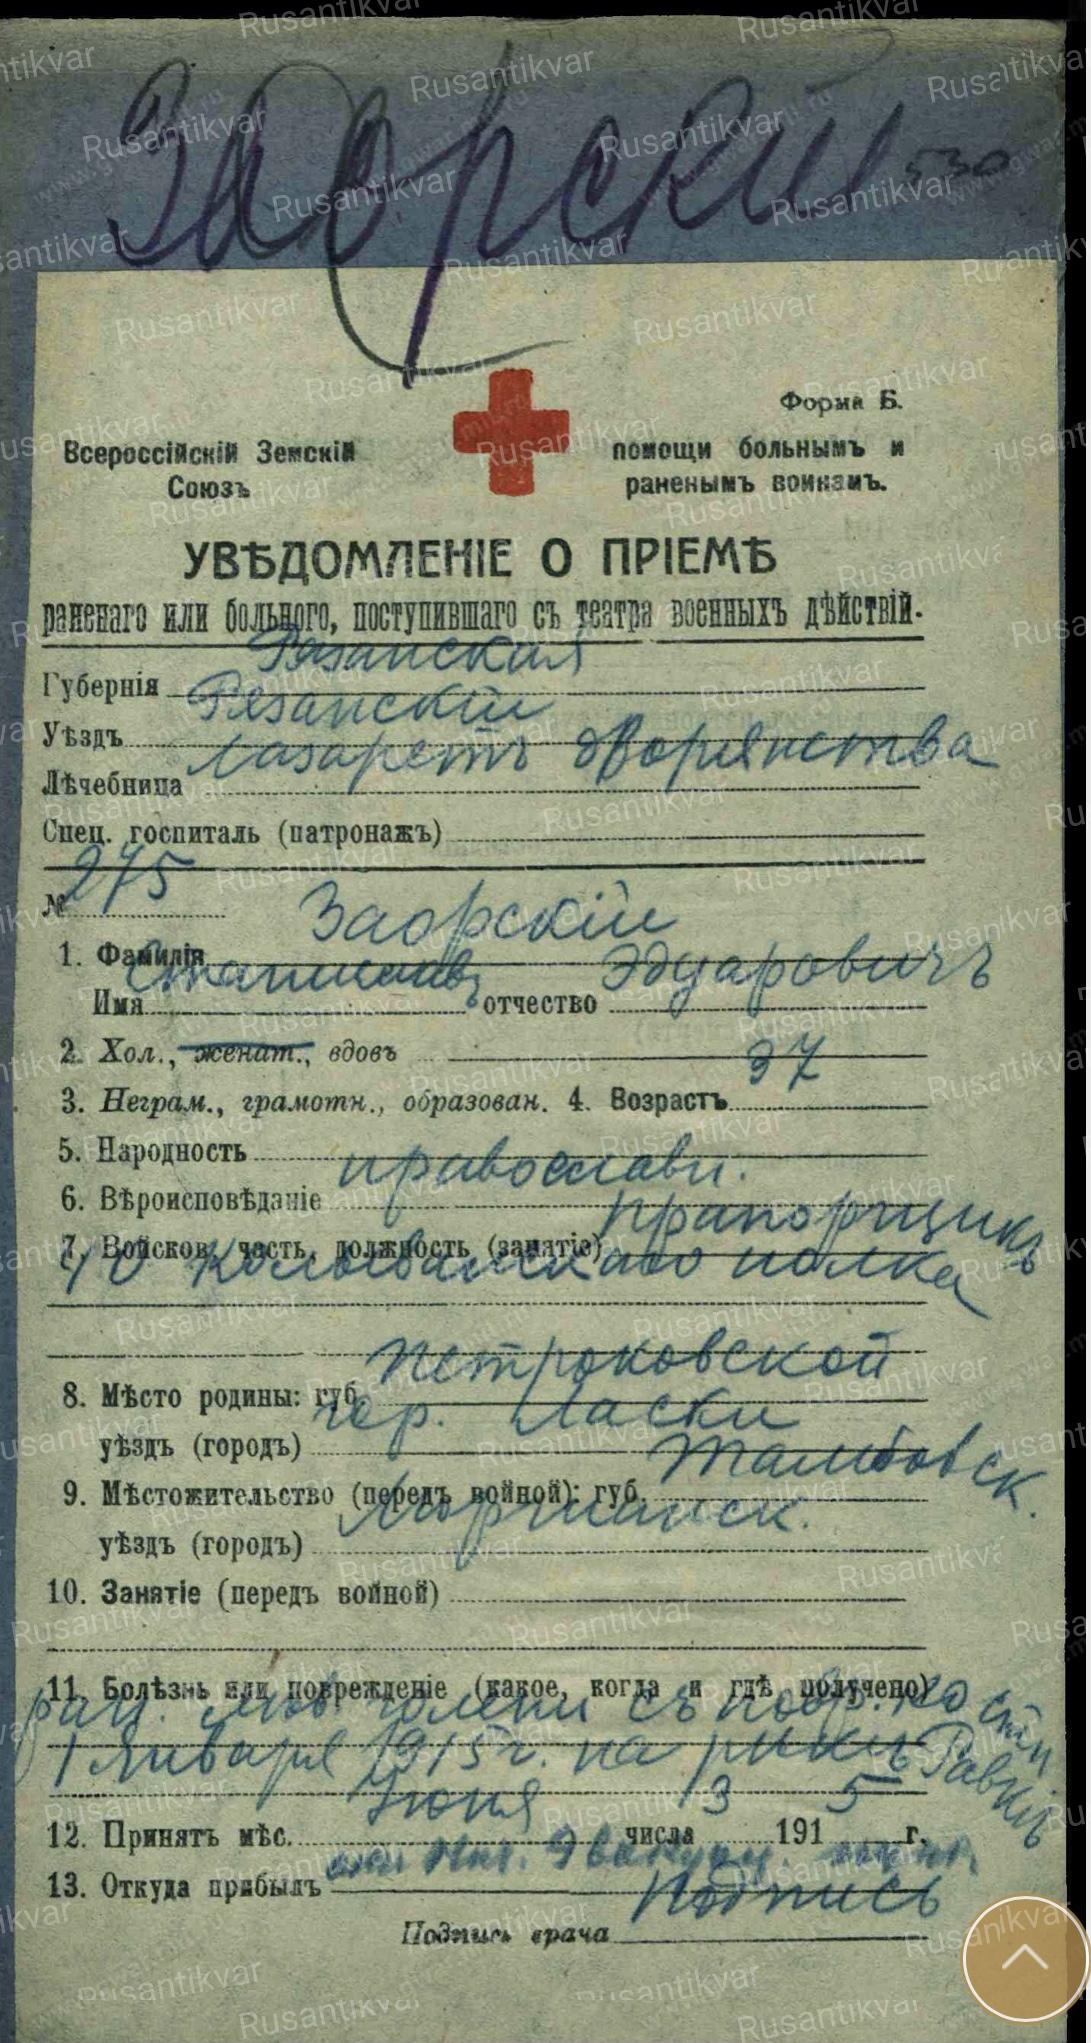 Заорскій 530
Форма Б.
Всероссійскій Земскій Союзъ
помощи больнымъ и раненымъ воинамъ.
УВѢДОМЛЕНІЕ О ПРІЕМѢ
раненаго или больного, поступившаго съ театра военныхъ дѣйствій.
Губернія Рязанская
Уѣздъ Рязанскій
Лѣчебница Лазаретъ дворянства
Спец. госпиталь (патронажъ)
№ 275
1. Фамилія Заорскій
Имя Станиславъ отчество Эдуаровичъ
2. Хол., женат., вдовъ
3. Неграм., грамотн., образован. 4. Возрастъ 37
5. Народность
6. Вѣроисповѣданіе православн.
7. Войсков. часть, должность (занятіе) Прапорщикъ
40 Колыванскаго полка
8. Мѣсто родины: губ. Петроковской
уѣздъ (городъ) гор. Ласки
9. Мѣстожительство (передъ войной): губ. Тамбовск.
уѣздъ (городъ) Моршанск.
10. Занятіе (передъ войной)
11. Болѣзнь или поврежденіе (какое, когда и гдѣ получено)
ран. лѣв. голени съ повр. кости
1 Января 1915 г. на рѣкѣ Равкѣ
12. Принятъ мѣс. Іюня числа 13 1915 г.
13. Откуда прибылъ Эвакуац. пункт.
Подпись врача Подпись